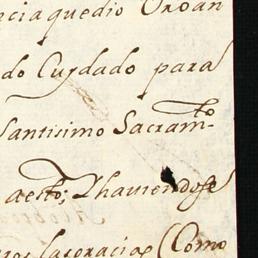 nciaquedio Vrban
do Cuydado para
Santisimo Sacram.to
aesto; Yhauiendose
las oracio⁠s (Como